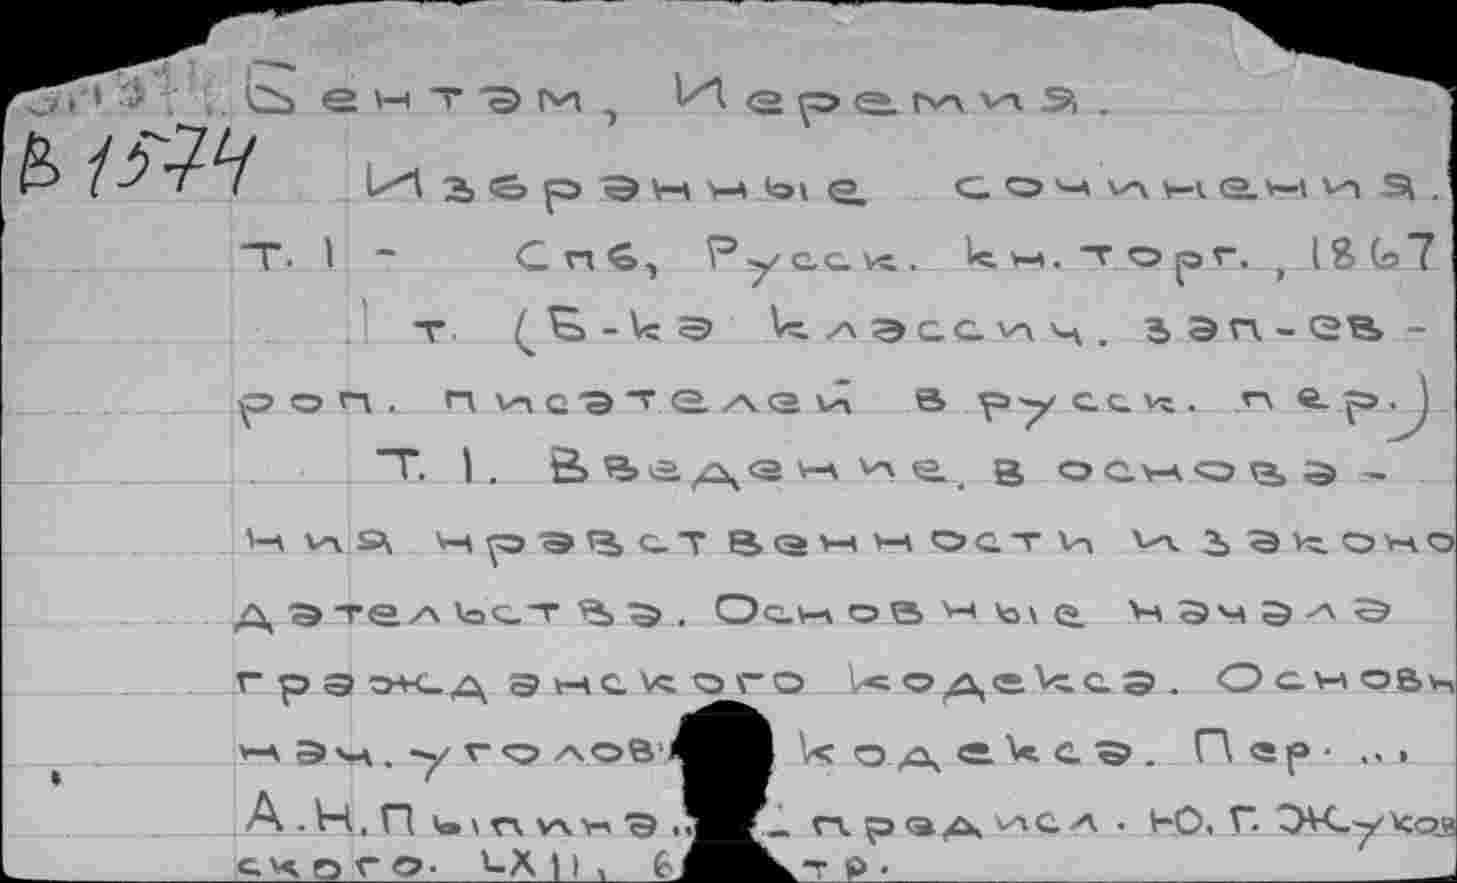 Бентэм, Иеремия.
В 1574
Избранные сочинения.
Т. 1 - Спб, Русск. кн. торг., 1867
1 т. (Б-ка классич. зап-ев-
роп. писателей в русск. пер.)
Т. 1. Введение в основа-
ния нравственности и законо
дательства. Основные начала
гражданского кодекса. Основн
нач. уголов кодекса. Пер. ...
А.Н. Пыпина предисл. Ю.Г. Жуков
ского. LXII,